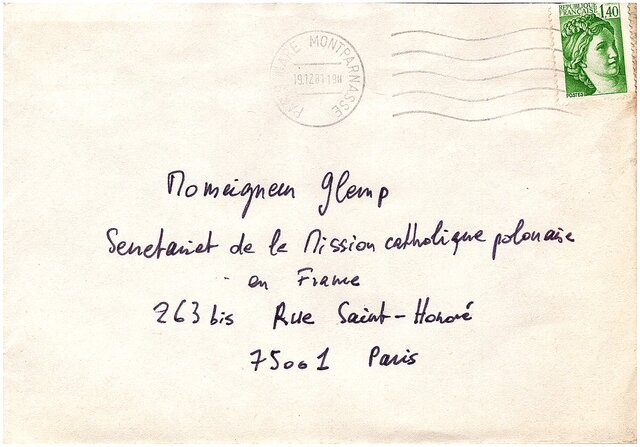 RÉPUBLIQUE
FRANÇAISE 1,40
POSTES
MONTPARNASSE
19.12.81-19H
Monseigneur Glemp
Secretariat de la Mission catholique polonaise
en France
263 bis Rue Saint-Honoré
75001 Paris